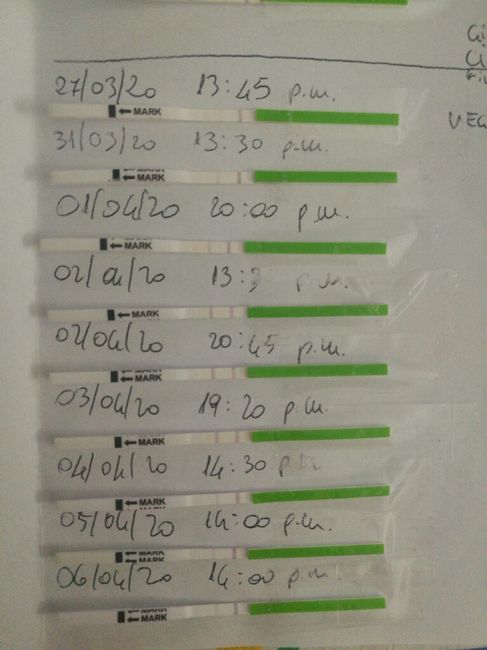 27/03/20 13:45 p.m.
← MARK
31/03/20 13:30 p.m.
← MARK
01/04/20 20:00 p.m.
← MARK
02/04/20 p.m.
← MARK
02/04/20 20:45 p.m.
← MARK
03/04/20 19:20 p.m.
← MARK
04/04/20 14:30
← MARK
05/04/20 14:00 p.m.
← MARK
06/04/20 14:00 p.m.
← MARK